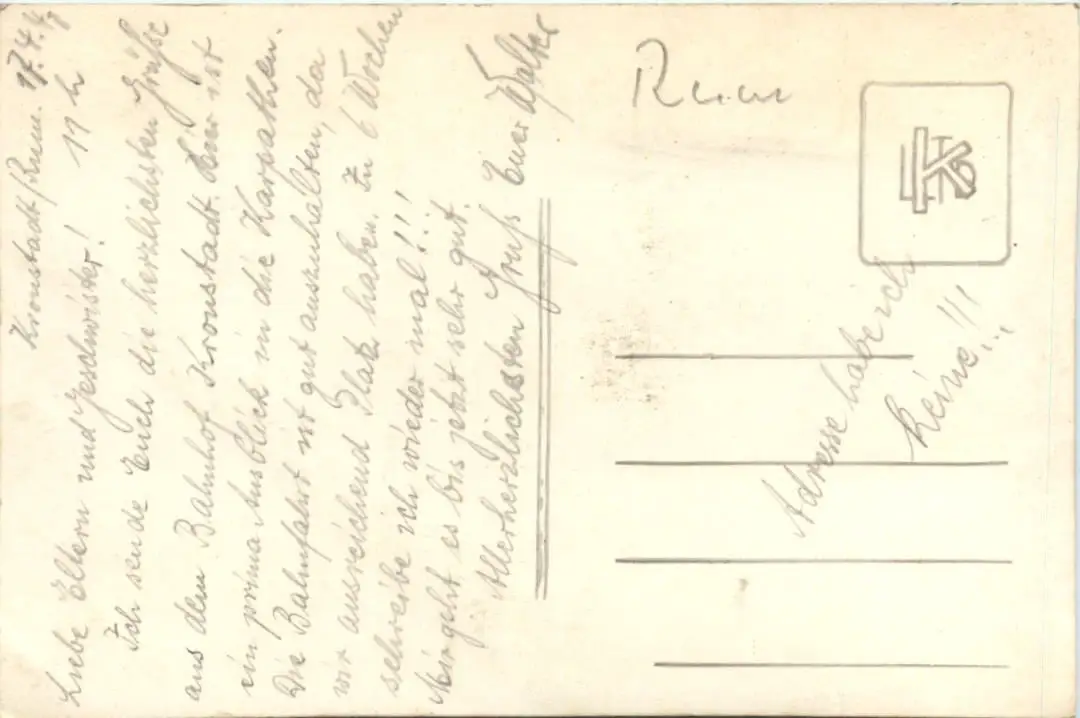 Kronstadt/Rum. 17.4.4
11 h
Liebe Eltern und Geschwister!
Ich sende Euch die herzlichsten Grüße
aus dem Bahnhof Kronstadt. Hier ist
ein prima Ausblick in die Karpathen.
Die Bahnfahrt ist gut auszuhalten, da
wir ausreichend Platz haben. In 6 Wochen
schreibe ich wieder mal!!!
Mir geht es bis jetzt sehr gut.
Allerherzlichsten Gruß Euer Walter
Adresse habe ich
keine!!!